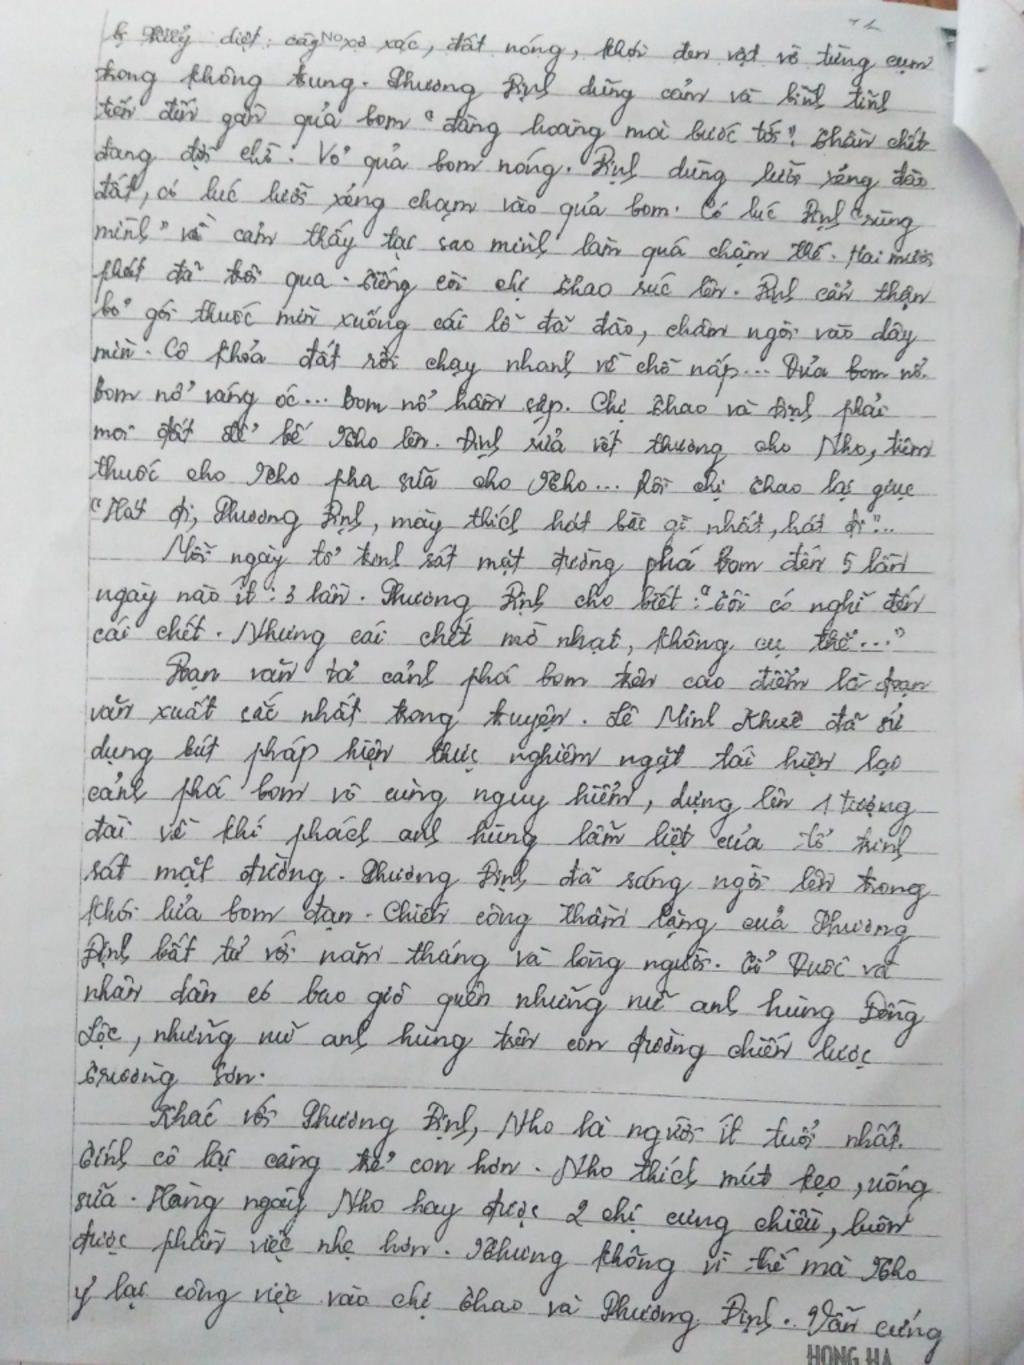 bị hủy diệt: cây xơ xác, đất nóng, khói đen vật vờ từng cụm
trong không trung. Phương Định dũng cảm và bình tĩnh
tiến đến gần quả bom "đàng hoàng mà bước tới". Thần chết
đang đợi chị. Vỏ quả bom nóng. Định dùng lưỡi xẻng đào
đất, có lúc lưỡi xẻng chạm vào quả bom. Có lúc Định "rùng
mình" và cảm thấy tại sao mình làm quá chậm thế. Hai mươi
phút đã trôi qua. Tiếng còi chị Thao rúc lên. Định cẩn thận
bỏ gói thuốc mìn xuống cái lỗ đã đào, châm ngòi vào dây
mìn. Cô khỏa đất rồi chạy nhanh về chỗ nấp... Quả bom nổ.
bom nổ váng óc... bom nổ hầm sập. Chị Thao và Định phải
moi đất để bế Nho lên. Định rửa vết thương cho Nho, tiêm
thuốc cho Nho pha sữa cho Nho... Rồi chị Thao lại giục
"Hát đi, Phương Định, mày thích hát bài gì nhất, hát đi"...
Mỗi ngày tổ trinh sát mặt đường phá bom đến 5 lần
ngày nào ít: 3 lần. Phương Định cho biết: "Tôi có nghĩ đến
cái chết. Nhưng cái chết mờ nhạt, không cụ thể..."
Đoạn văn tả cảnh phá bom trên cao điểm là đoạn
văn xuất sắc nhất trong truyện. Lê Minh Khuê đã sử
dụng bút pháp hiện thực nghiêm ngặt tái hiện lại
cảnh phá bom vô cùng nguy hiểm, dựng lên 1 tượng
đài về khí phách anh hùng lẫm liệt của tổ trinh
sát mặt đường. Phương Định đã sáng ngời lên trong
khói lửa bom đạn. Chiến công thầm lặng của Phương
Định bất tử với năm tháng và lòng người. Tổ Quốc và
nhân dân có bao giờ quên những nữ anh hùng Đồng
Lộc, những nữ anh hùng trên con đường chiến lược
Trường Sơn.
Khác với Phương Định, Nho là người ít tuổi nhất.
Tính cô lại càng trẻ con hơn. Nho thích mút kẹo, uống
sữa. Hàng ngày Nho hay được 2 chị cưng chiều, luôn
được phần việc nhẹ hơn. Nhưng không vì thế mà Nho
ỷ lại công việc vào chị Thao và Phương Định. Vẫn cứng
HONG HA